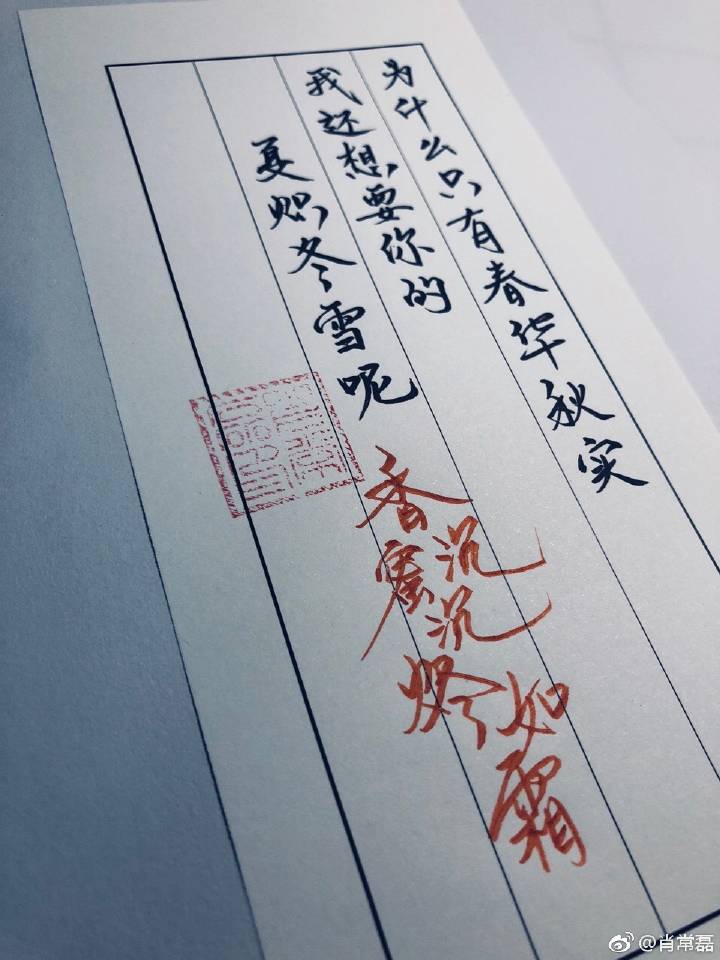 为什么只有春华秋实
我还想要你的
夏炽冬雪呢
香蜜沉沉
烬如霜
@肖常磊